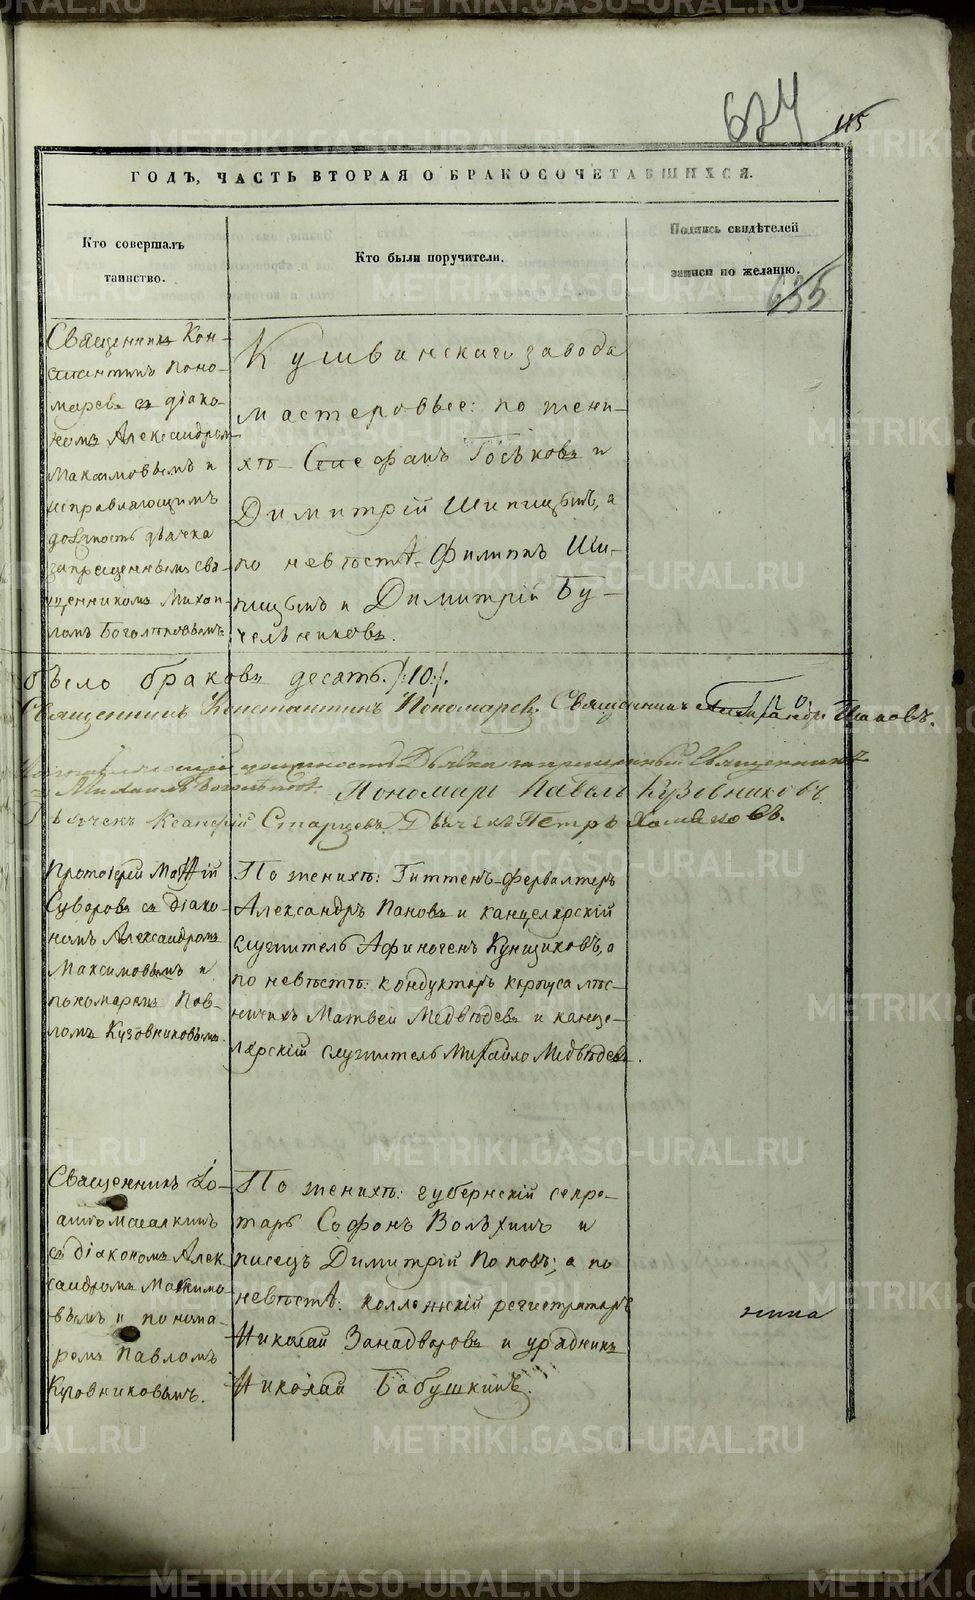 METRIKI.GASO-URAL.RU
624 115
ГОДЪ, ЧАСТЬ ВТОРАЯ О БРАКОСОЧЕТАВШИХСЯ.
Кто совершалъ
таинство.
Кто были поручители.
Подпись свидѣтелей
записи по желанію.
635
Священникъ Кон-
стантинъ Поно-
маревъ съ діако-
номъ Александромъ
Максимовымъ и
исправляющимъ
должность дьячка
запрещеннымъ свя-
щенникомъ Михаи-
ломъ
Кушвинскаго завода
мастеровые: по жени-
хѣ Стефанъ Госьковъ и
Димитрій Шипицынъ, а
по невѣстѣ Филиппъ Ши-
пицынъ и Димитрій Бу-
чельниковъ.
было браковъ десять /:10:/.
Священникъ Константинъ Пономаревъ. Священникъ Поповъ.
Исправляющій должность Дьячка запрещенный Священникъ
Михаилъ Пономарь Павелъ Кузовниковъ
Дьячекъ Старцевъ. Дьячекъ Петръ Хомяковъ.
Протоіерей
Суворовъ съ діако-
номъ Александромъ
Максимовымъ и
пономаремъ Пав-
ломъ Кузовниковымъ.
По женихѣ: Гиттенъ-фервалтеръ
Александръ Пановъ и канцелярскій
служитель Афиногенъ Кунщиковъ, а
по невѣстѣ: кондукторъ корпуса лѣс-
ничихъ Матвей Медвѣдевъ и канце-
лярскій служитель Михайло Медвѣдевъ.
Священникъ Іо-
аннъ
съ діакономъ Алек-
сандромъ Максимо-
вымъ и понома-
ремъ Павломъ
Кузовниковымъ.
По женихѣ: губернскій секре-
тарь Софонъ Волѣхинъ и
писецъ Димитрій Поповъ; а по
невѣстѣ: коллежскій регистраторъ
Николай Занадворовъ и урядникъ
Николай Бабушкинъ.